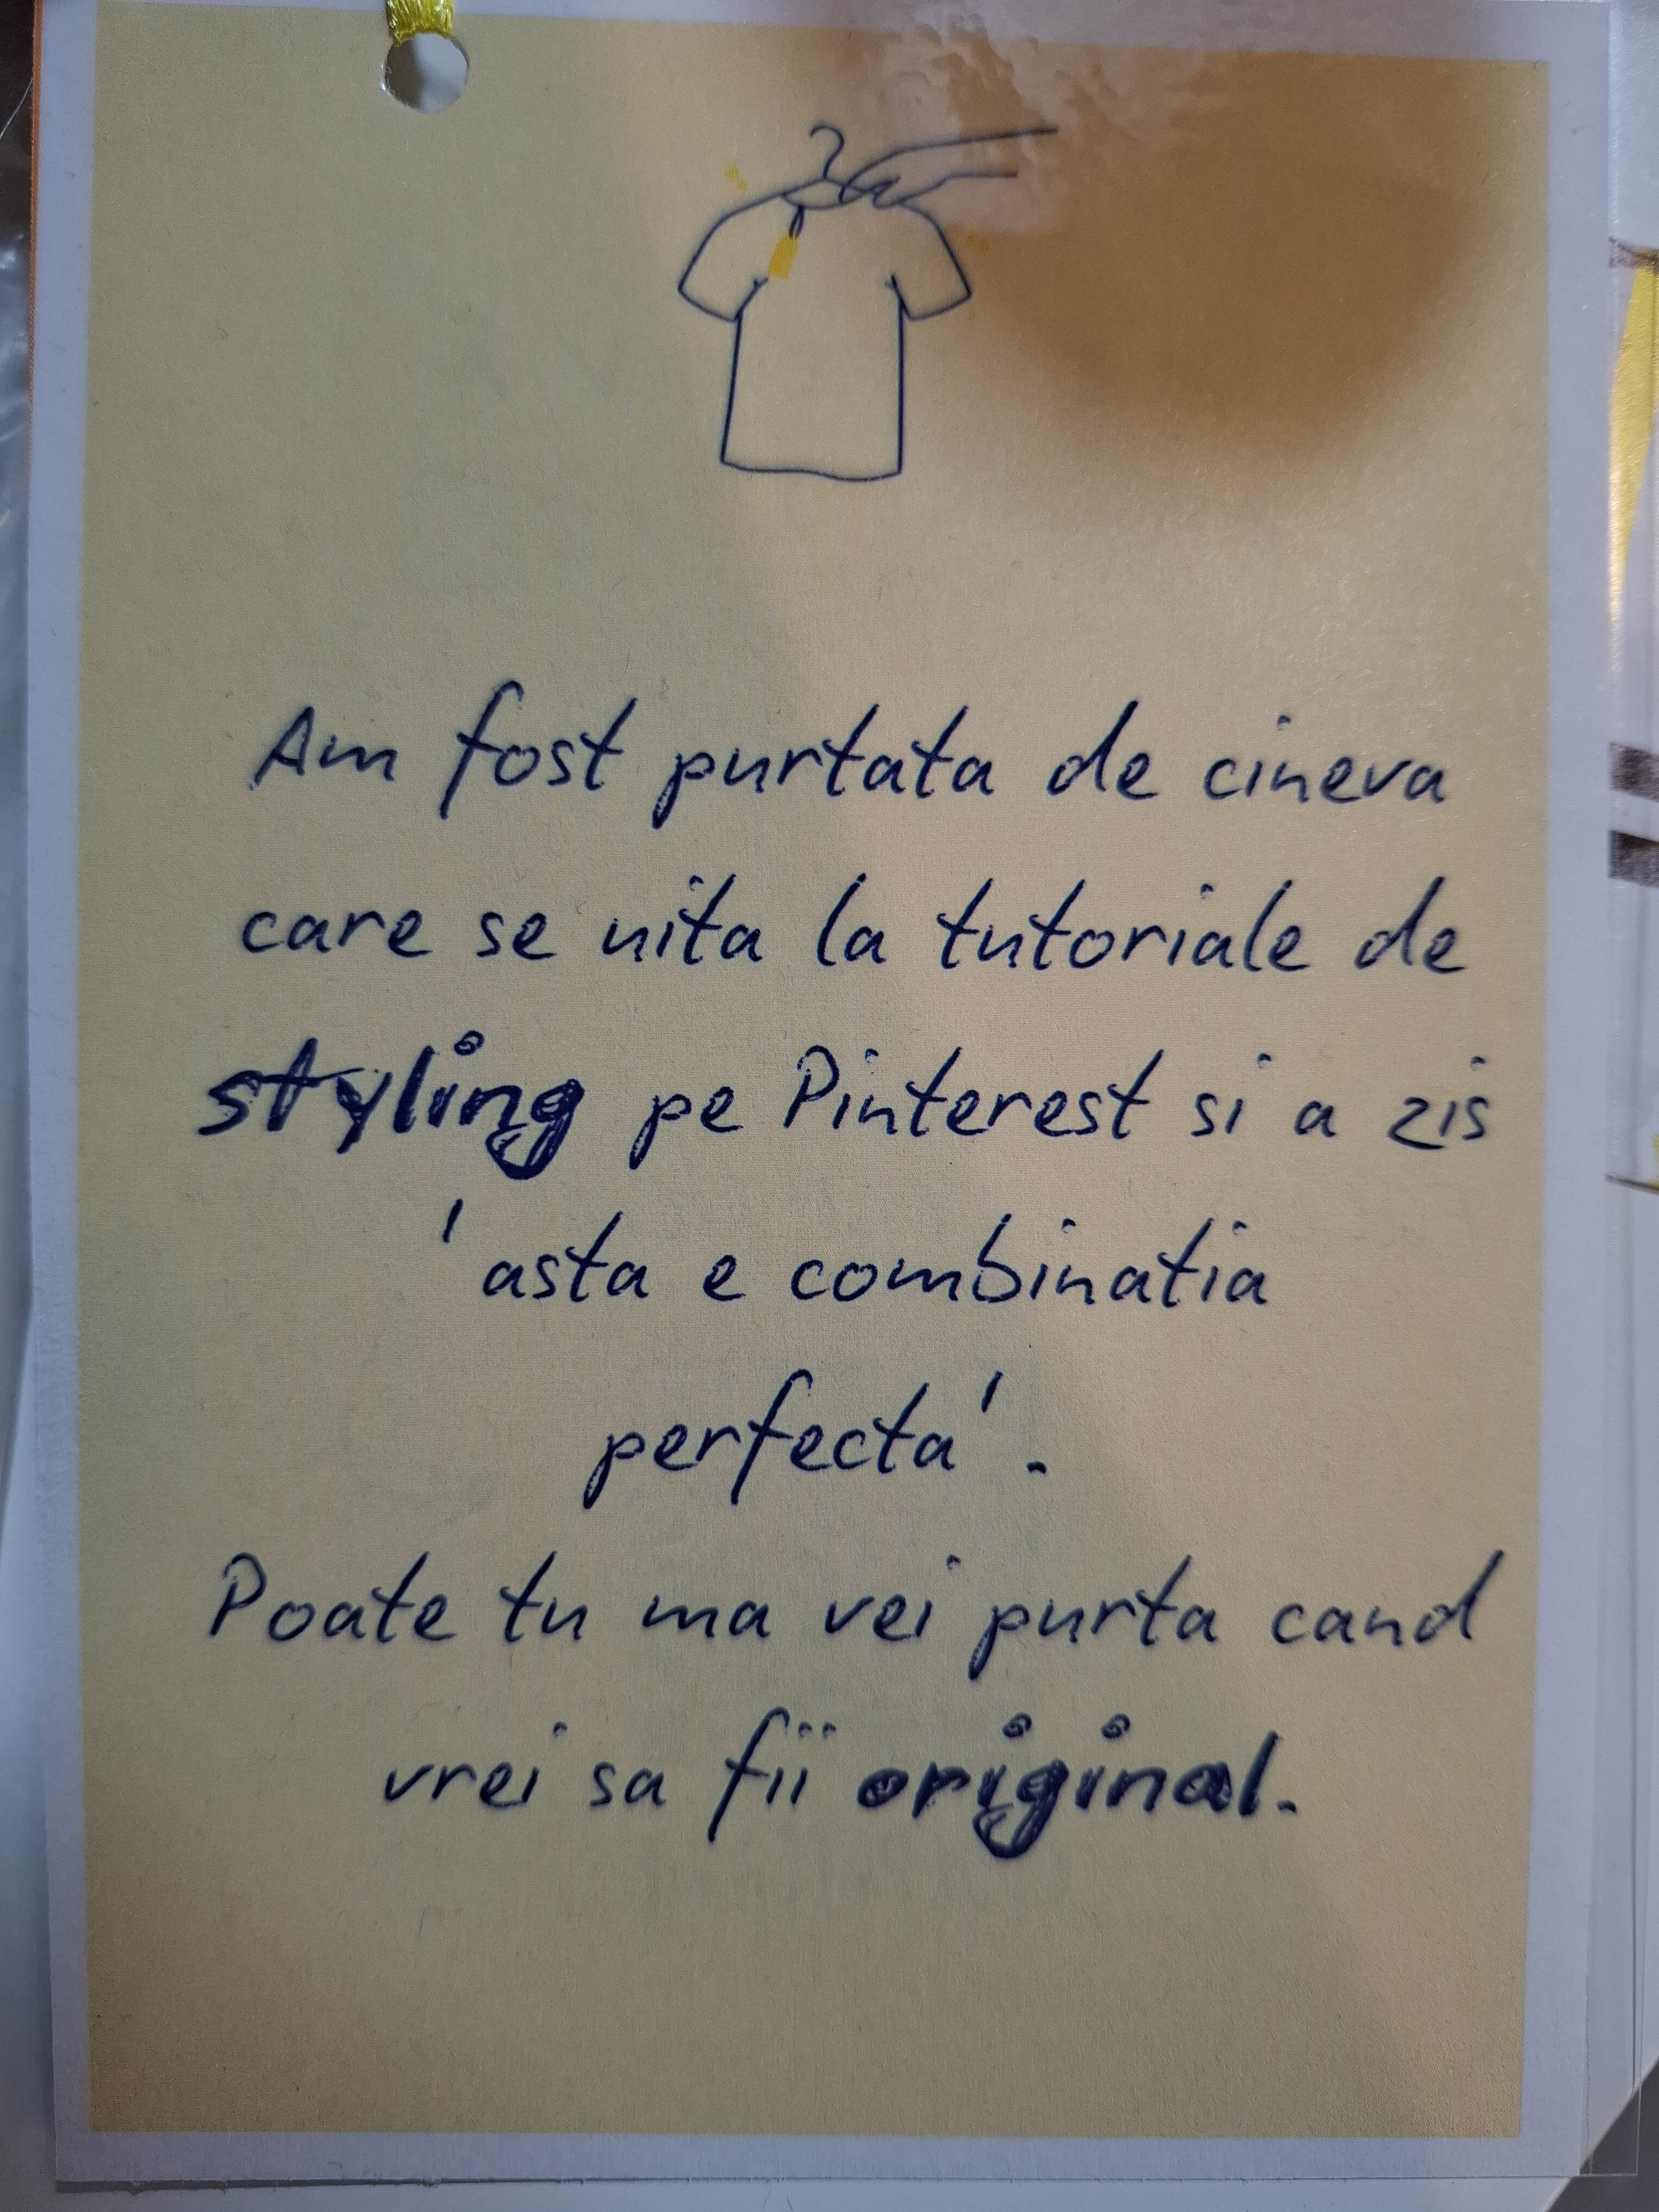 Am fost purtata de cineva
care se uita la tutoriale de
styling pe Pinterest si a zis
'asta e combinatia
perfecta'.
Poate tu ma vei purta cand
vrei sa fii original.